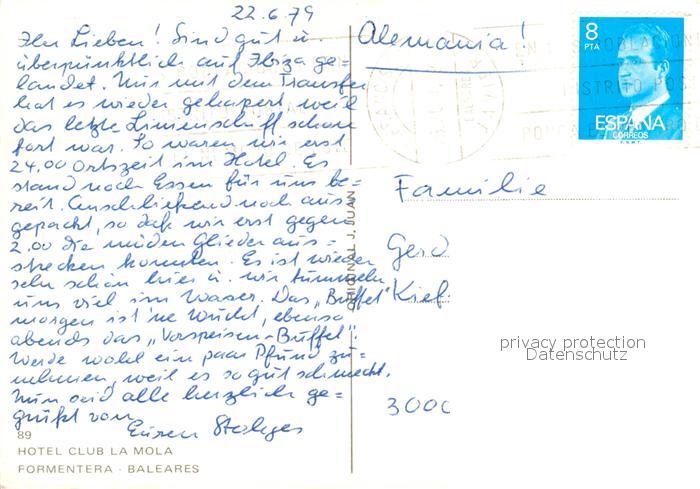 22.6.79
Ihr Lieben! Sind gut u.
überpünktlich auf Ibiza ge-
landet. Nur mit dem Transfer
hat es wieder gehapert, weil
das letzte Linienschiff schon
fort war. So waren wir erst
24.00 Ortszeit im Hotel. Es
stand noch Essen für uns be-
reit. Anschließend noch aus-
gepackt, so daß wir erst gegen
2.00 die müden Glieder aus-
strecken konnten. Es ist wieder
sehr schön hier u. wir tummeln
uns viel im Wasser. Das „Buffet"
morgen ist 'ne Wucht, ebenso
abends das „Vorspeisen-Buffet".
Werde wohl ein paar Pfund zu-
nehmen, weil es so gut schmeckt.
Nun seid alle herzlich ge-
grüßt von
Euren
89
HOTEL CLUB LA MOLA
FORMENTERA · BALEARES
ORIGINAL J. JUAN
Alemania!
8
PTA
ESPAÑA
CORREOS
F.N.M.T.
Familie
Gerd
Kief
privacy protection
Datenschutz
3000